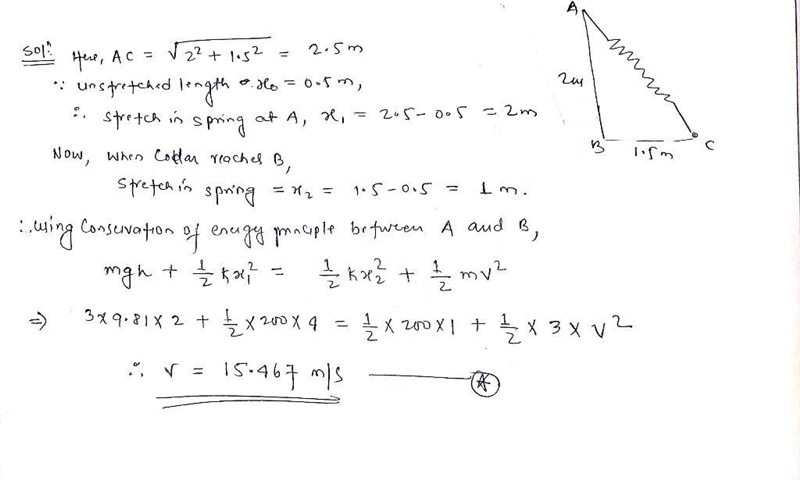 Solⁿ: Here, AC = √2² + 1.5² = 2.5m
∵ unstretched length x₀ = 0.5m,
∴ Stretch in spring at A, x₁ = 2.5 - 0.5 = 2m
Now, when Collar reaches B,
Stretch in spring = x₂ = 1.5 - 0.5 = 1 m.
∴ Using Conservation of energy principle between A and B,
mgh + 1/2 kx₁² = 1/2 kx₂² + 1/2 mv²
⇒ 3×9.81×2 + 1/2 × 200 × 4 = 1/2 × 200 × 1 + 1/2 × 3 × v²
∴ v = 15.467 m/s A
A
2m
B
1.5m
C